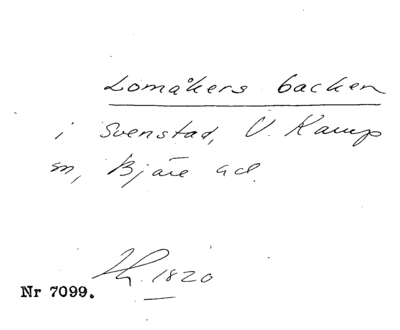 Lomåkers backen
i Svenstad, V. Karup
sn, Bjäre hd.
1820
Nr 7099.